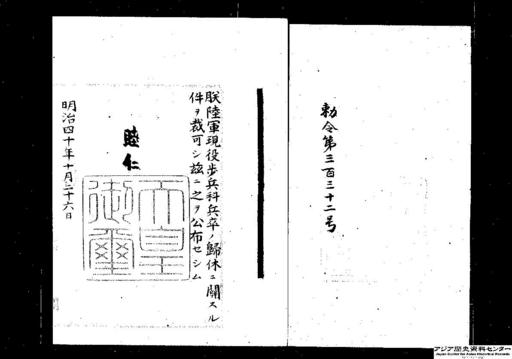 勅令第三百三十二号
朕陸軍現役歩兵科兵卒ノ歸休ニ關スル
件ヲ裁可シ茲ニ之ヲ公布セシム
睦仁
天皇
御璽
明治四十年十月二十六日
アジア歴史資料センター
Japan Center for Asian Historical Records